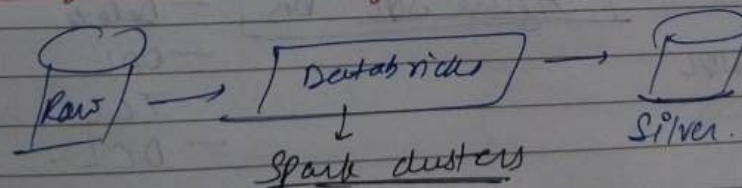 Raw
Databricks
Silver.
Spark clusters